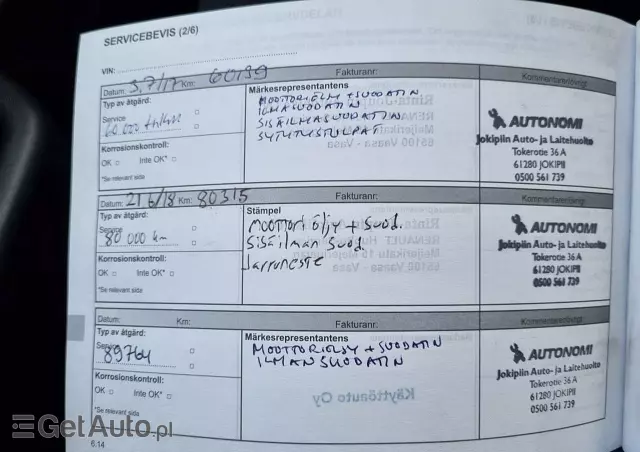 SERVICEBEVIS (2/6)
VIN:
Datum: 3.7/17 Km: 60139
Fakturanr:
Kommentarer/övrigt
Typ av åtgärd:
Service
60 000 tkm
Korrosionskontroll:
OK Inte OK*
*Se relevant sida
Märkesrepresentantens
MOOTTORIÖLJY + SUODATIN
ILMASUODATIN
SISÄILMASUODATIN
SYTYTYSTULPAT
AUTONOMI
Jokipiin Auto- ja Laitehuolto
Tokerotie 36 A
61280 JOKIPII
0500 561 739
Datum: 21 6/18 Km: 80315
Fakturanr:
Kommentarer/övrigt
Typ av åtgärd:
Service
80 000 km
Korrosionskontroll:
OK Inte OK*
*Se relevant sida
Stämpel
MOOTTORI ÖLJY + SUOD.
SISÄILMAN SUOD.
JARRUNESTE
AUTONOMI
Jokipiin Auto- ja Laitehuolto
Tokerotie 36 A
61280 JOKIPII
0500 561 739
Datum: Km:
Fakturanr:
Kommentarer/övrigt
Typ av åtgärd:
Service
89764
Korrosionskontroll:
OK Inte OK*
*Se relevant sida
Märkesrepresentantens
MOOTTORIÖLJY + SUODATIN
ILMANSUODATIN
AUTONOMI
Jokipiin Auto- ja Laitehuolto
Tokerotie 36 A
61280 JOKIPII
0500 561 739
6.14
GetAuto.pl